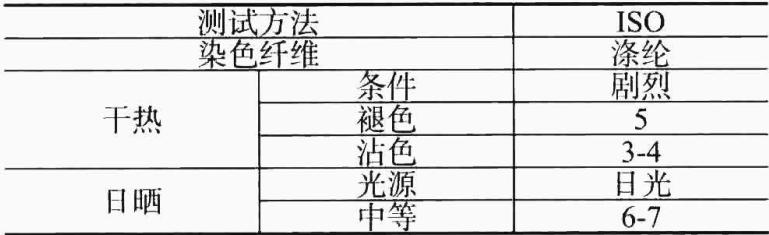 测试方法 ISO
染色纤维 涤纶
干热 条件 剧烈
褪色 5
沾色 3-4
日晒 光源 日光
中等 6-7